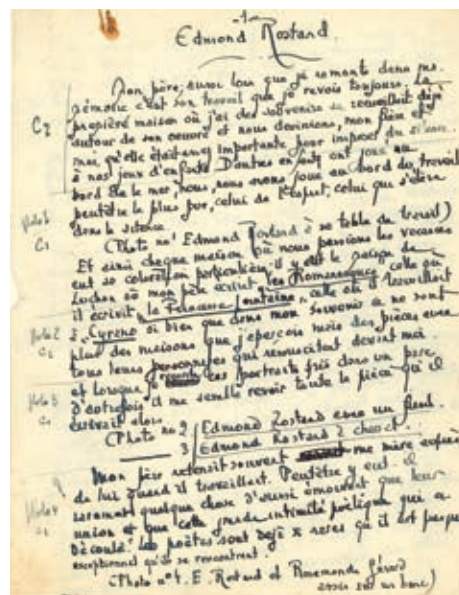 -1-
Edmond Rostand.
Mon père, aussi loin que je remonte dans ma
mémoire c'est son travail que je revois toujours. La
première maison où j'ai des souvenirs se recueillait déjà
autour de son oeuvre et nous devinions, mon frère et
moi, qu'elle était assez importante pour imposer du silence
à nos jeux d'enfants. D'autres enfants ont joué au
bord de la mer, nous, nous avons joué au bord du travail
peutêtre le plus pur, celui de l'esprit, celui qui s'élève
dans le silence.
(Photo no 1 Edmond Rostand à sa table de travail)
Et ainsi chaque maison où nous passions les vacances
eut sa coloration particulière, il y eut la maison de
Luchon où mon père écrivit les Romanesques, celle où
il écrivit la Princesse lointaine, celle où il travaillait
à Cyrano si bien que dans mon souvenir ce ne sont
plus des maisons que j'aperçois mais des pièces avec
tous leurs personnages qui ressuscitent devant moi.
et lorsque je ces portraits pris dans un parc
d'autrefois il me semble revoir toute la pièce qu'il
écrivait alors.
(Photo no 2 Edmond Rostand avec un
3 Edmond Rostand à cheval.
Mon père retenait souvent ma mère auprès
de lui quand il travaillait. Peutêtre y eut-il
rarement quelque chose d'aussi émouvant que leur
union et que cette grande intimité poétique qui en
découla. Les poètes sont déjà si rares qu'il est presque
exceptionnel qu'ils se rencontrent.
(Photo no 4. E. Rostand et Rosemonde Gérard
assis sur un banc)
C2
photo 1
C1
photo 2
C1
photo 3
photo 4